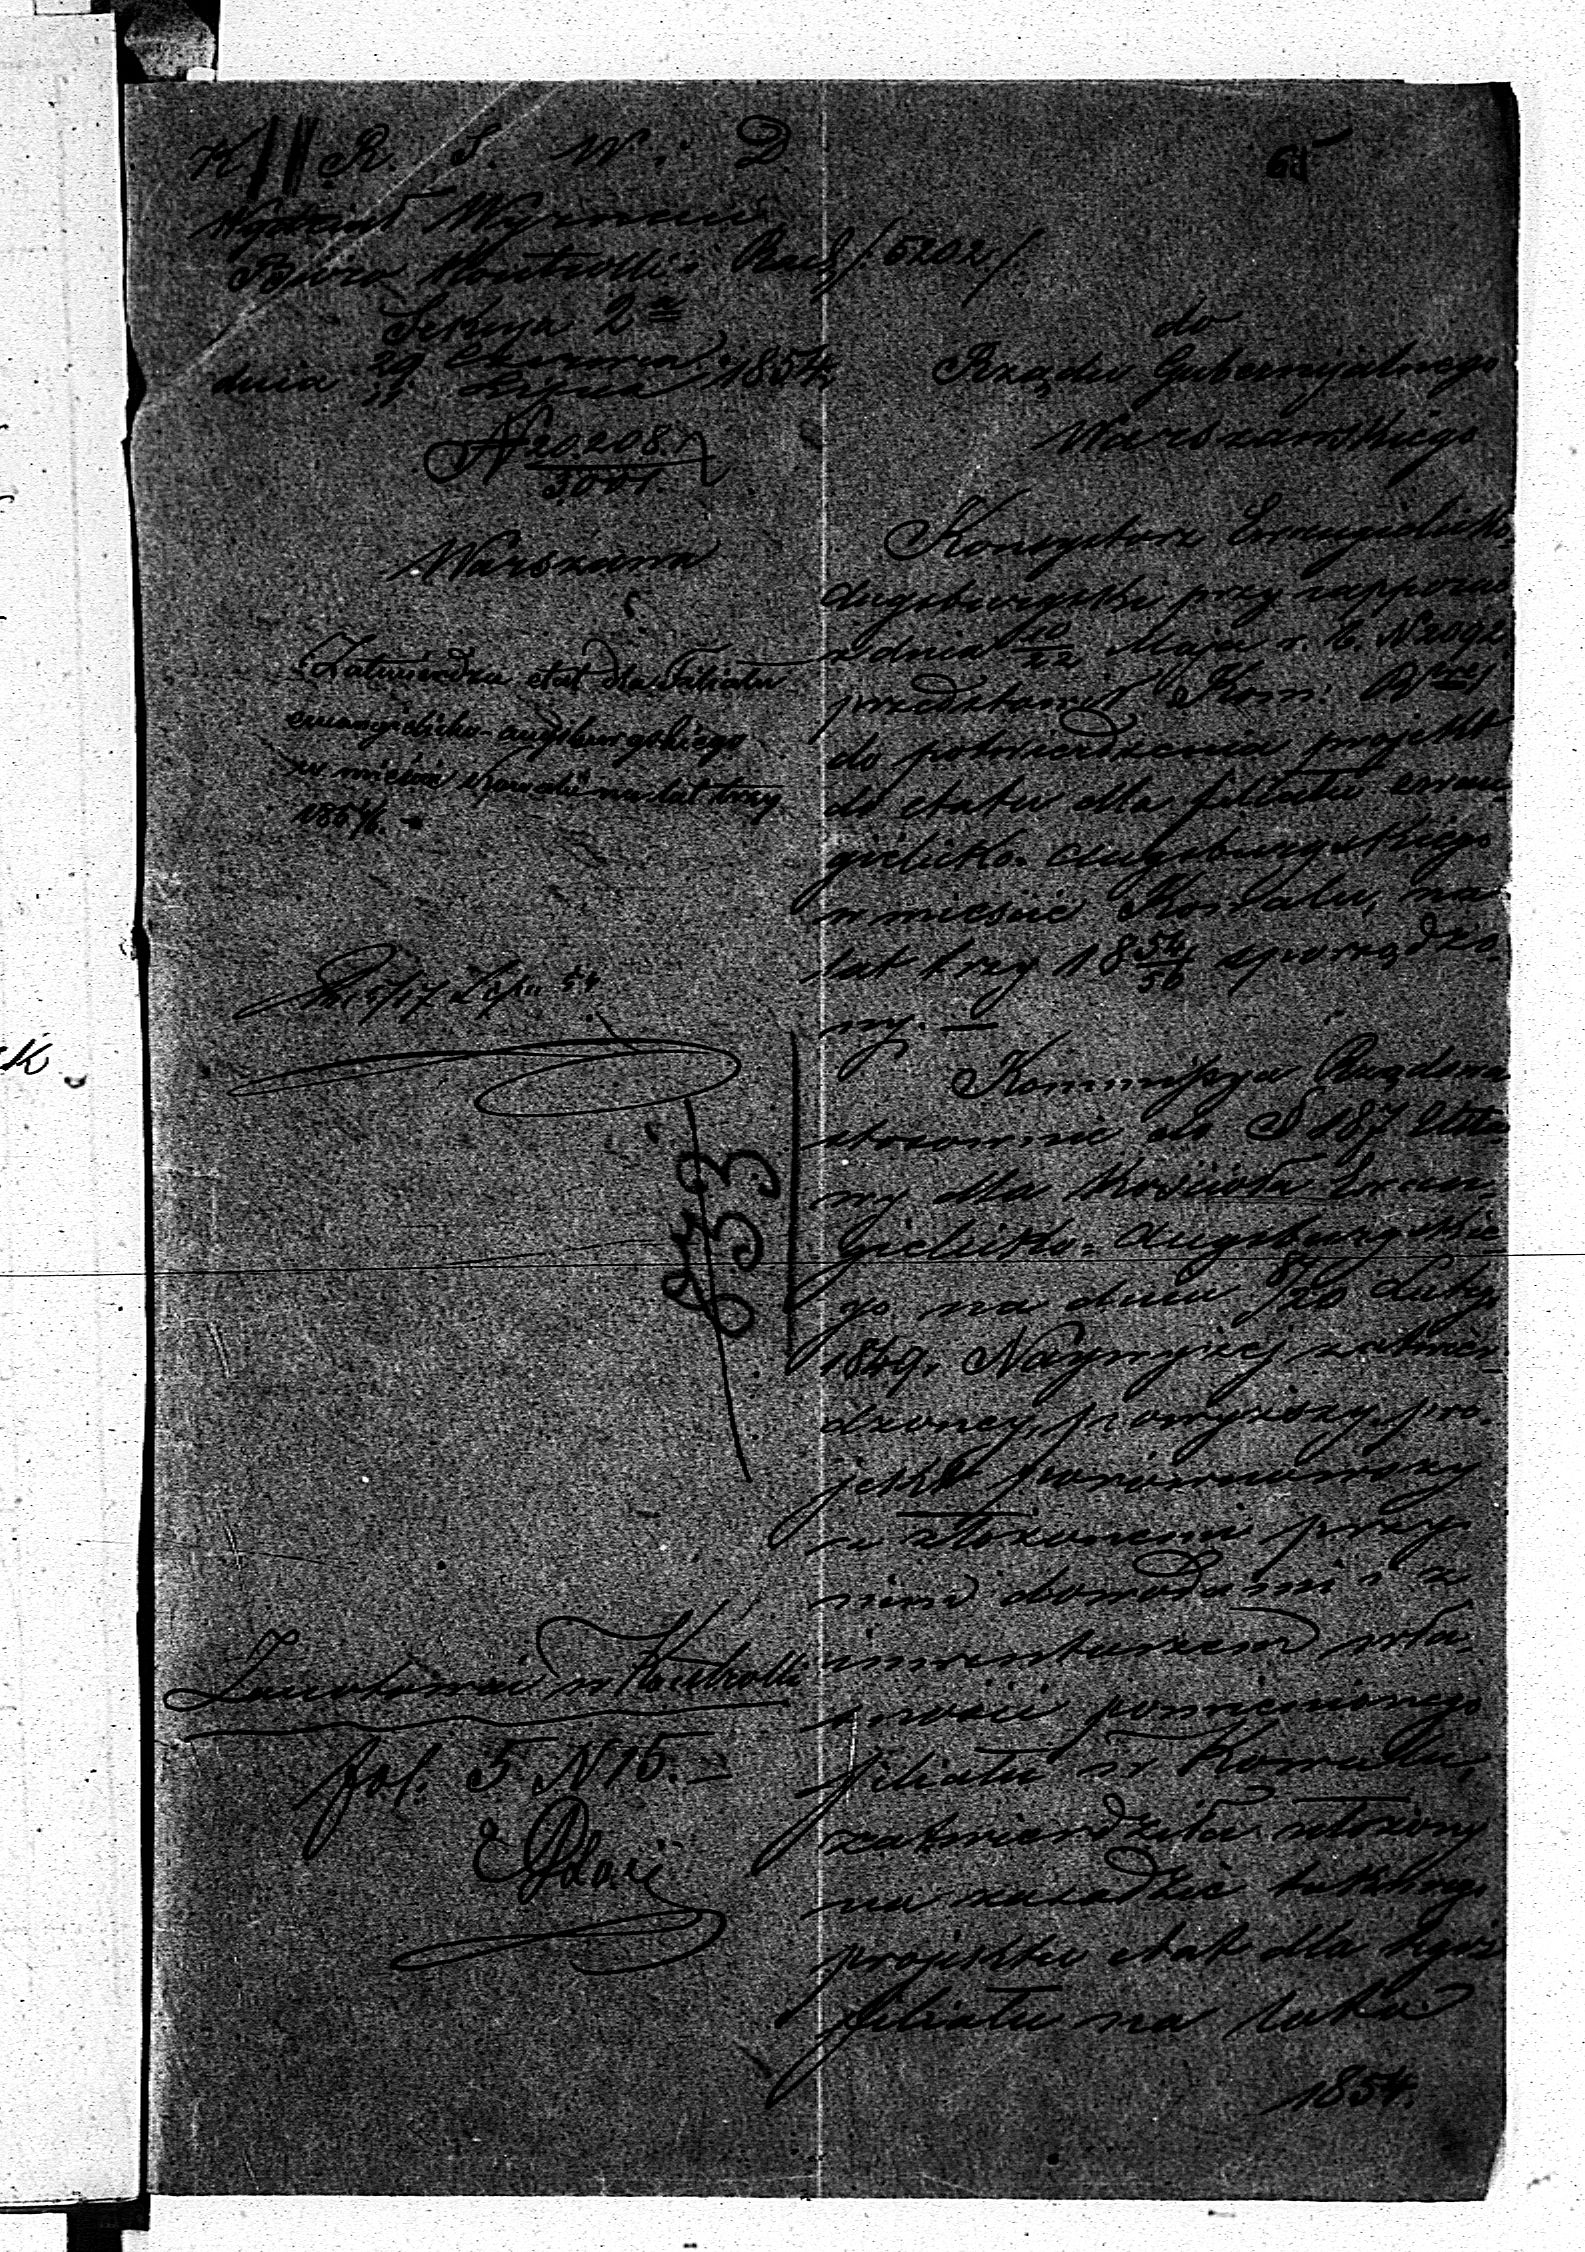 K. R. S. W. i D.
Wydział Wyznań
Biuro Kontrolli i Rach /5202/
Sekcya 2a
dnia 29 Czerwca / 11 Lipca 1854
N 20.208.
Warszawa
Zatwierdza etat dla Filiału
ewangelicko-augsburgskiego
w mieście Kowalu na lat trzy
1854/6. -
17 Lipca 54
833
Zanotować w Kontrolli
fol. 5 N 15. -
65
do
Rządu Gubernijalnego
Warszawskiego
Konsystorz Ewangelicko-
Augsburgski przy rapporcie
z dnia 10/22 Maja r. b. N 2092
przedstawił Kom: Rz
do potwierdzenia projekt
do etatu dla filiału ewan-
gielicko-Augsburgskiego
w mieście Kowalu, na
lat trzy 1854/56 sporządzo-
ny. -
Kommissya Rządowa
stosownie do § 187 Usta-
wy dla Kościoła Ewan-
gielicko-Augsburgskie
go na dniu 8/20 Lutego
1849. Naywyżej zatwier-
dzoney, powyższy pro-
jekt porównawszy
z złożonemi przy
niem dowodami i z
inwentarzem wła-
sności pomienionego
filiału w Kowalu,
zatwierdziła ułożony
na zasadzie takowego
projektu etat dla tegoż
filiału na lata
1854.